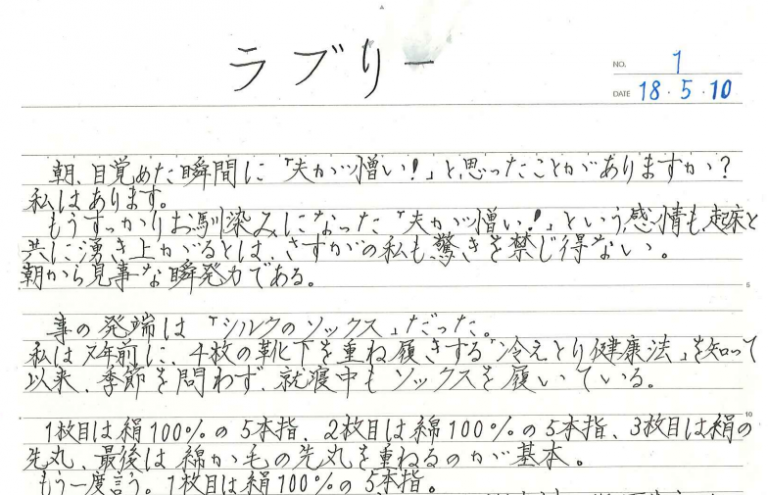 ラブリー
NO. 1
DATE 18・5・10
朝、目覚めた瞬間に「夫が憎い!」と思ったことがありますか?
私はあります。
もうすっかりお馴染みになった「夫が憎い!」という感情も、起床と
共に湧き上がるとは、さすがの私も驚きを禁じ得ない。
朝から見事な瞬発力である。
5
事の発端は「シルクのソックス」だった。
私は数年前に、4枚の靴下を重ね履きする「冷えとり健康法」を知って
以来、季節を問わず、就寝中もソックスを履いている。
10
1枚目は絹100%の5本指、2枚目は綿100%の5本指、3枚目は絹の
先丸、最後は綿か毛の先丸を重ねるのが基本。
もう一度言う。1枚目は絹100%の5本指。